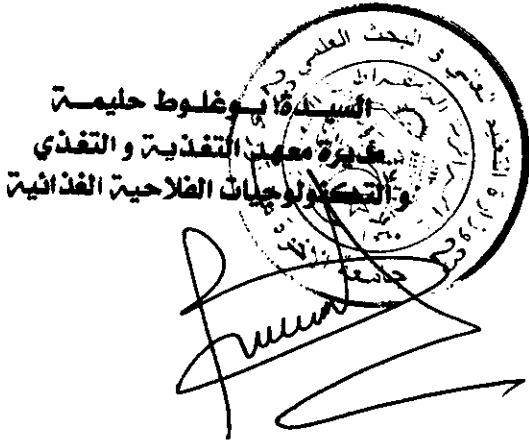 السيدة/ بوغلوط حليمة
مديرة معهد التغذية و التغذي
و التكنولوجيات الفلاحية الغذائية
وزارة التعليم العالي و البحث العلمي
جامعة